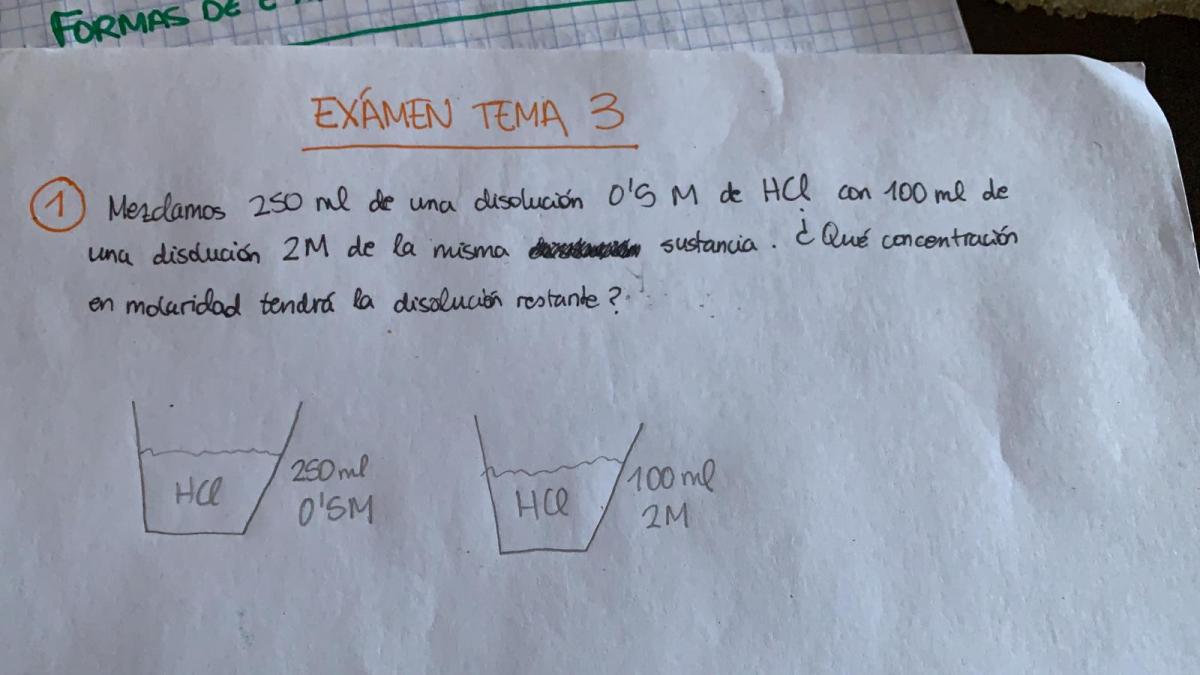 FORMAS DE
EXÁMEN TEMA 3
1 Mezclamos 250 ml de una disolución 0'5 M de HCl con 100 ml de
una disolución 2M de la misma sustancia. ¿Qué concentración
en molaridad tendrá la disolución restante?
HCl
250 ml
0'5M
HCl
100 ml
2M